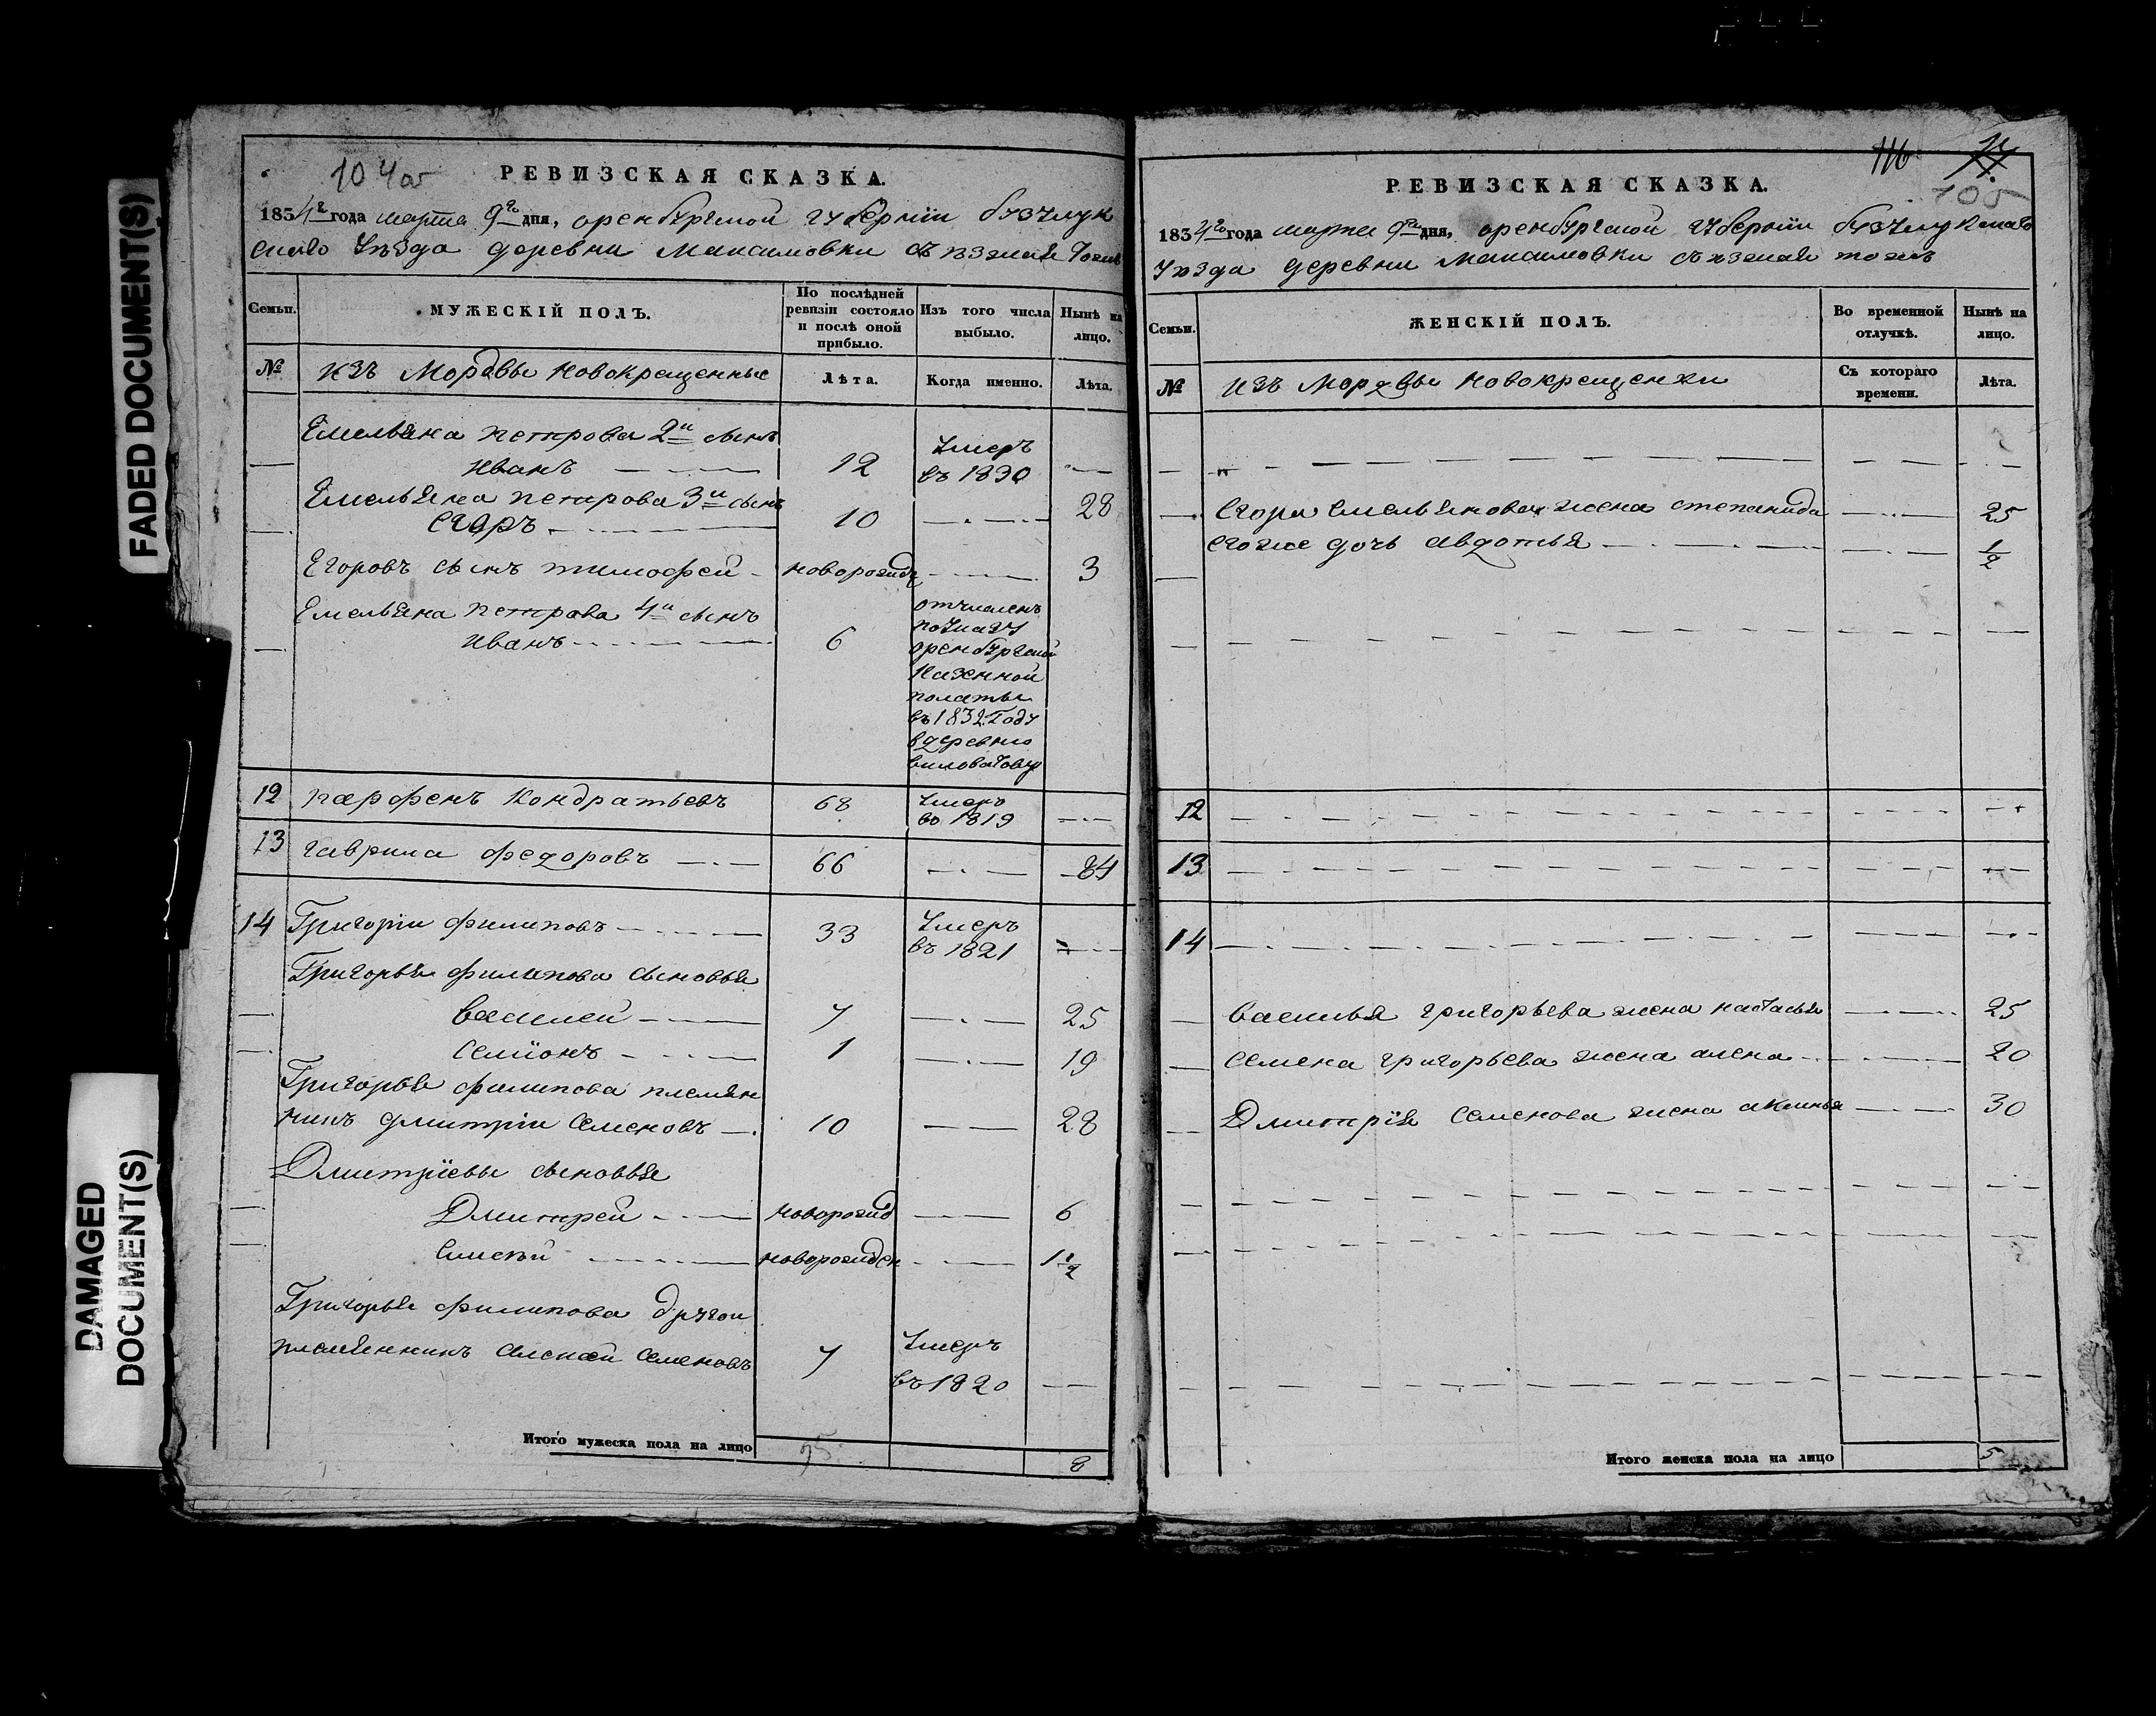 FADED DOCUMENT(S)
DAMAGED
DOCUMENT(S)
104об
РЕВИЗСКАЯ СКАЗКА.
1834го года марта 9го дня, оренбургской губернiи бузулук
скаго уѣзда деревни Максимовки
Семьи.
МУЖЕСКІЙ ПОЛЪ.
По послѣдней ревизіи состояло и послѣ оной прибыло.
Изъ того числа выбыло.
Нынѣ на лицо.
№
изъ Мордвы новокрещенные
Лѣта.
Когда именно.
Лѣта.
Емельяна петрова 2й сынъ
иванъ 12 умеръ въ 1830
Емельяна петрова 3й сынъ
егоръ 10 28
Егоровъ сынъ тимофей новорожд 3
Емельяна петрова 4й сынъ
иванъ 6
отчисленъ
по указу
оренбургской
казенной
полаты
въ 1832 году
в деревню
виловатову
12 парфенъ Кондратьевъ 68 умеръ во 1819
13 гаврила федоровъ 66 84
14 Григорiи филиповъ 33 умеръ въ 1821
Григорья филипова сыновья
василей 7 25
семiонъ 1 19
Григорья филипова племян
никъ дмитрiи семеновъ 10 28
Дмитрiевы сыновья
Дмитрей новорожд 6
новорожден 1 1/2
Григорья филипова другои
племянникъ алексей семеновъ 7 умеръ въ 1820
Итого мужеска пола на лицо 8
116
105
РЕВИЗСКАЯ СКАЗКА.
1834го года марта 9го дня, оренбургской губернiи бузулукскаго
уѣзда деревни максимовки
Семьи.
ЖЕНСКІЙ ПОЛЪ.
Во временной отлучкѣ.
Нынѣ на лицо.
№
изъ Мордвы новокрещенки
Съ котораго времени.
Лѣта.
Егора емельянова жена степанида 25
егоже дочь авдотья 1/2
12
13
14
василья григорьева жена настасья 25
семена григорьева жена алена 20
Дмитрiя семенова жена аксинья 30
Итого женска пола на лицо 5